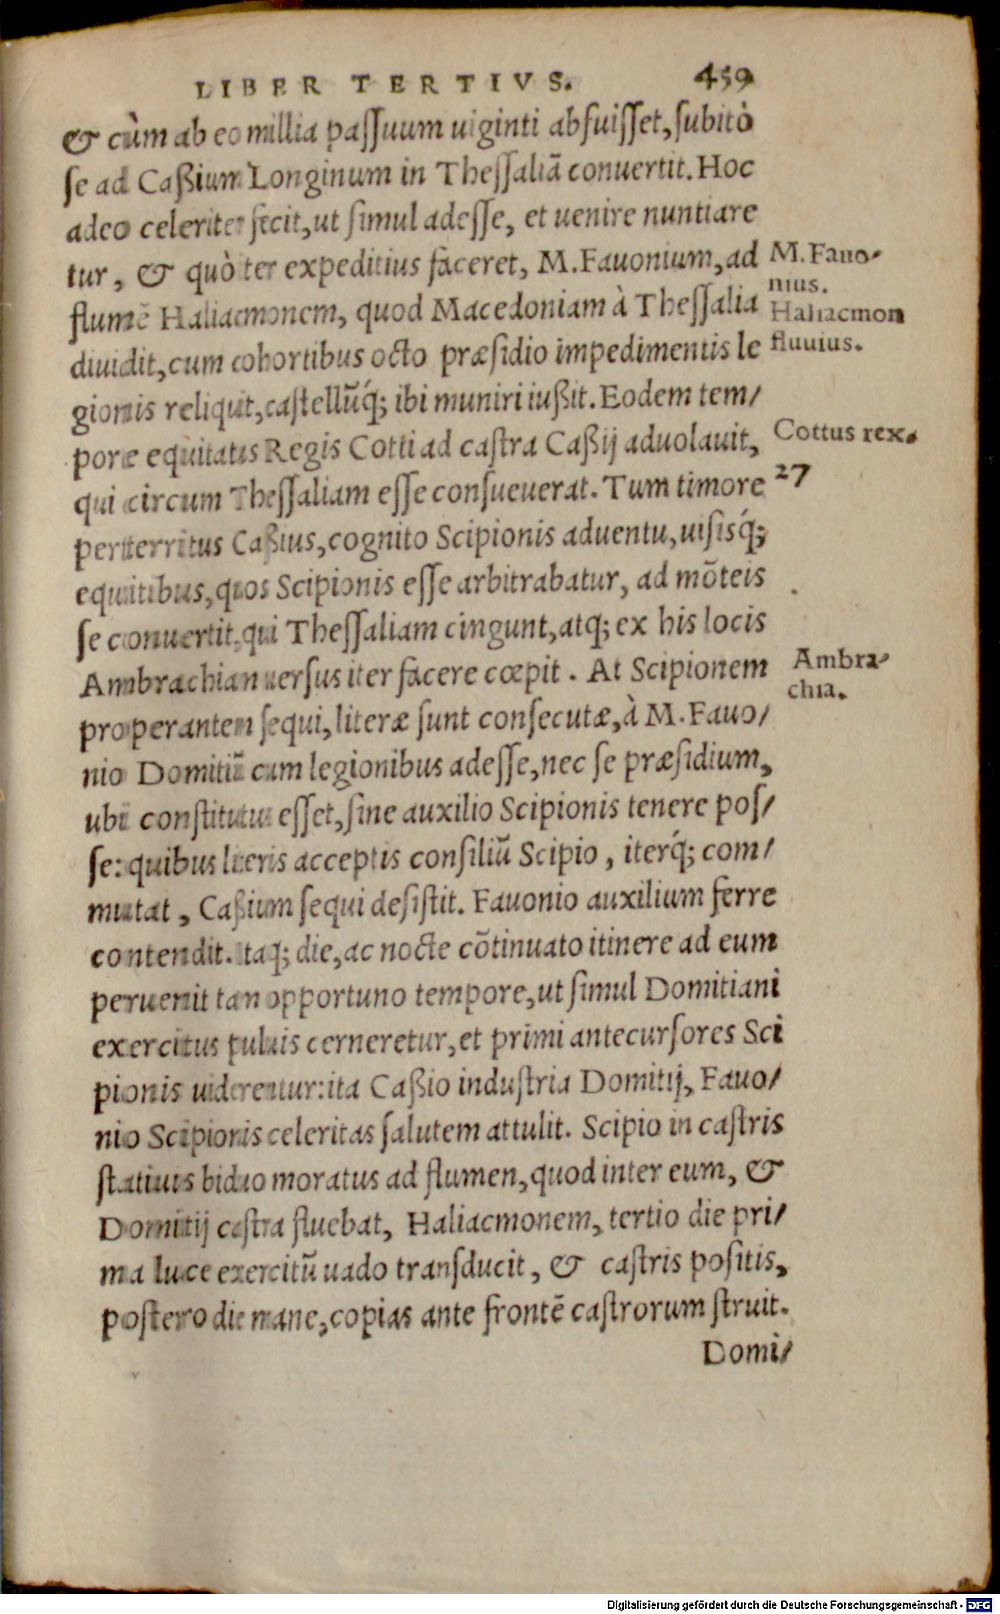 LIBER TERTIVS. 459
& cùm ab eo millia paſſuum uiginti abfuiſſet, ſubitò
ſe ad Caßium Longinum in Theſſaliã conuertit. Hoc
adeo celeriter fecit, ut ſimul adeſſe, et uenire nuntiare
tur, & quò ter expeditius faceret, M. Fauonium, ad
flumẽ Haliacmonem, quod Macedoniam à Theſſalia
diuidit, cum cohortibus octo præſidio impedimentis le
gionis reliquit, caſtellũq́; ibi muniri iußit. Eodem tem/
pore equitatus Regis Cotti ad caſtra Caßij aduolauit,
qui circum Theſſaliam eſſe conſueuerat. Tum timore
perterritus Caßius, cognito Scipionis aduentu, uiſisq́;
equitibus, quos Scipionis eſſe arbitrabatur, ad mõteis
ſe conuertit, qui Theſſaliam cingunt, atq; ex his locis
Ambrachian uerſus iter facere cœpit. At Scipionem
properantem ſequi, literæ ſunt conſecutæ, à M. Fauo/
nio Domitiũ cum legionibus adeſſe, nec ſe præſidium,
ubi conſtitutus eſſet, ſine auxilio Scipionis tenere poſ/
ſe: quibus literis acceptis conſiliũ Scipio, iterq́; com/
mutat, Caßium ſequi deſiſtit. Fauonio auxilium ferre
contendit. Itaq; die, ac nocte cõtinuato itinere ad eum
peruenit tam opportuno tempore, ut ſimul Domitiani
exercitus puluis cerneretur, et primi antecurſores Sci
pionis uiderentur: ita Caßio induſtria Domitij, Fauo/
nio Scipionis celeritas ſalutem attulit. Scipio in caſtris
ſtatiuis biduo moratus ad flumen, quod inter eum, &
Domitij caſtra fluebat, Haliacmonem, tertio die pri/
ma luce exercitũ uado tranſducit, & caſtris poſitis,
poſtero die mane, copias ante frontẽ caſtrorum ſtruit.
Domi/
M. Fauo-
nius.
Haliacmon
fluuius.
Cottus rex.
27
Ambra-
chia.
Digitalisierung gefördert durch die Deutsche Forschungsgemeinschaft - DFG